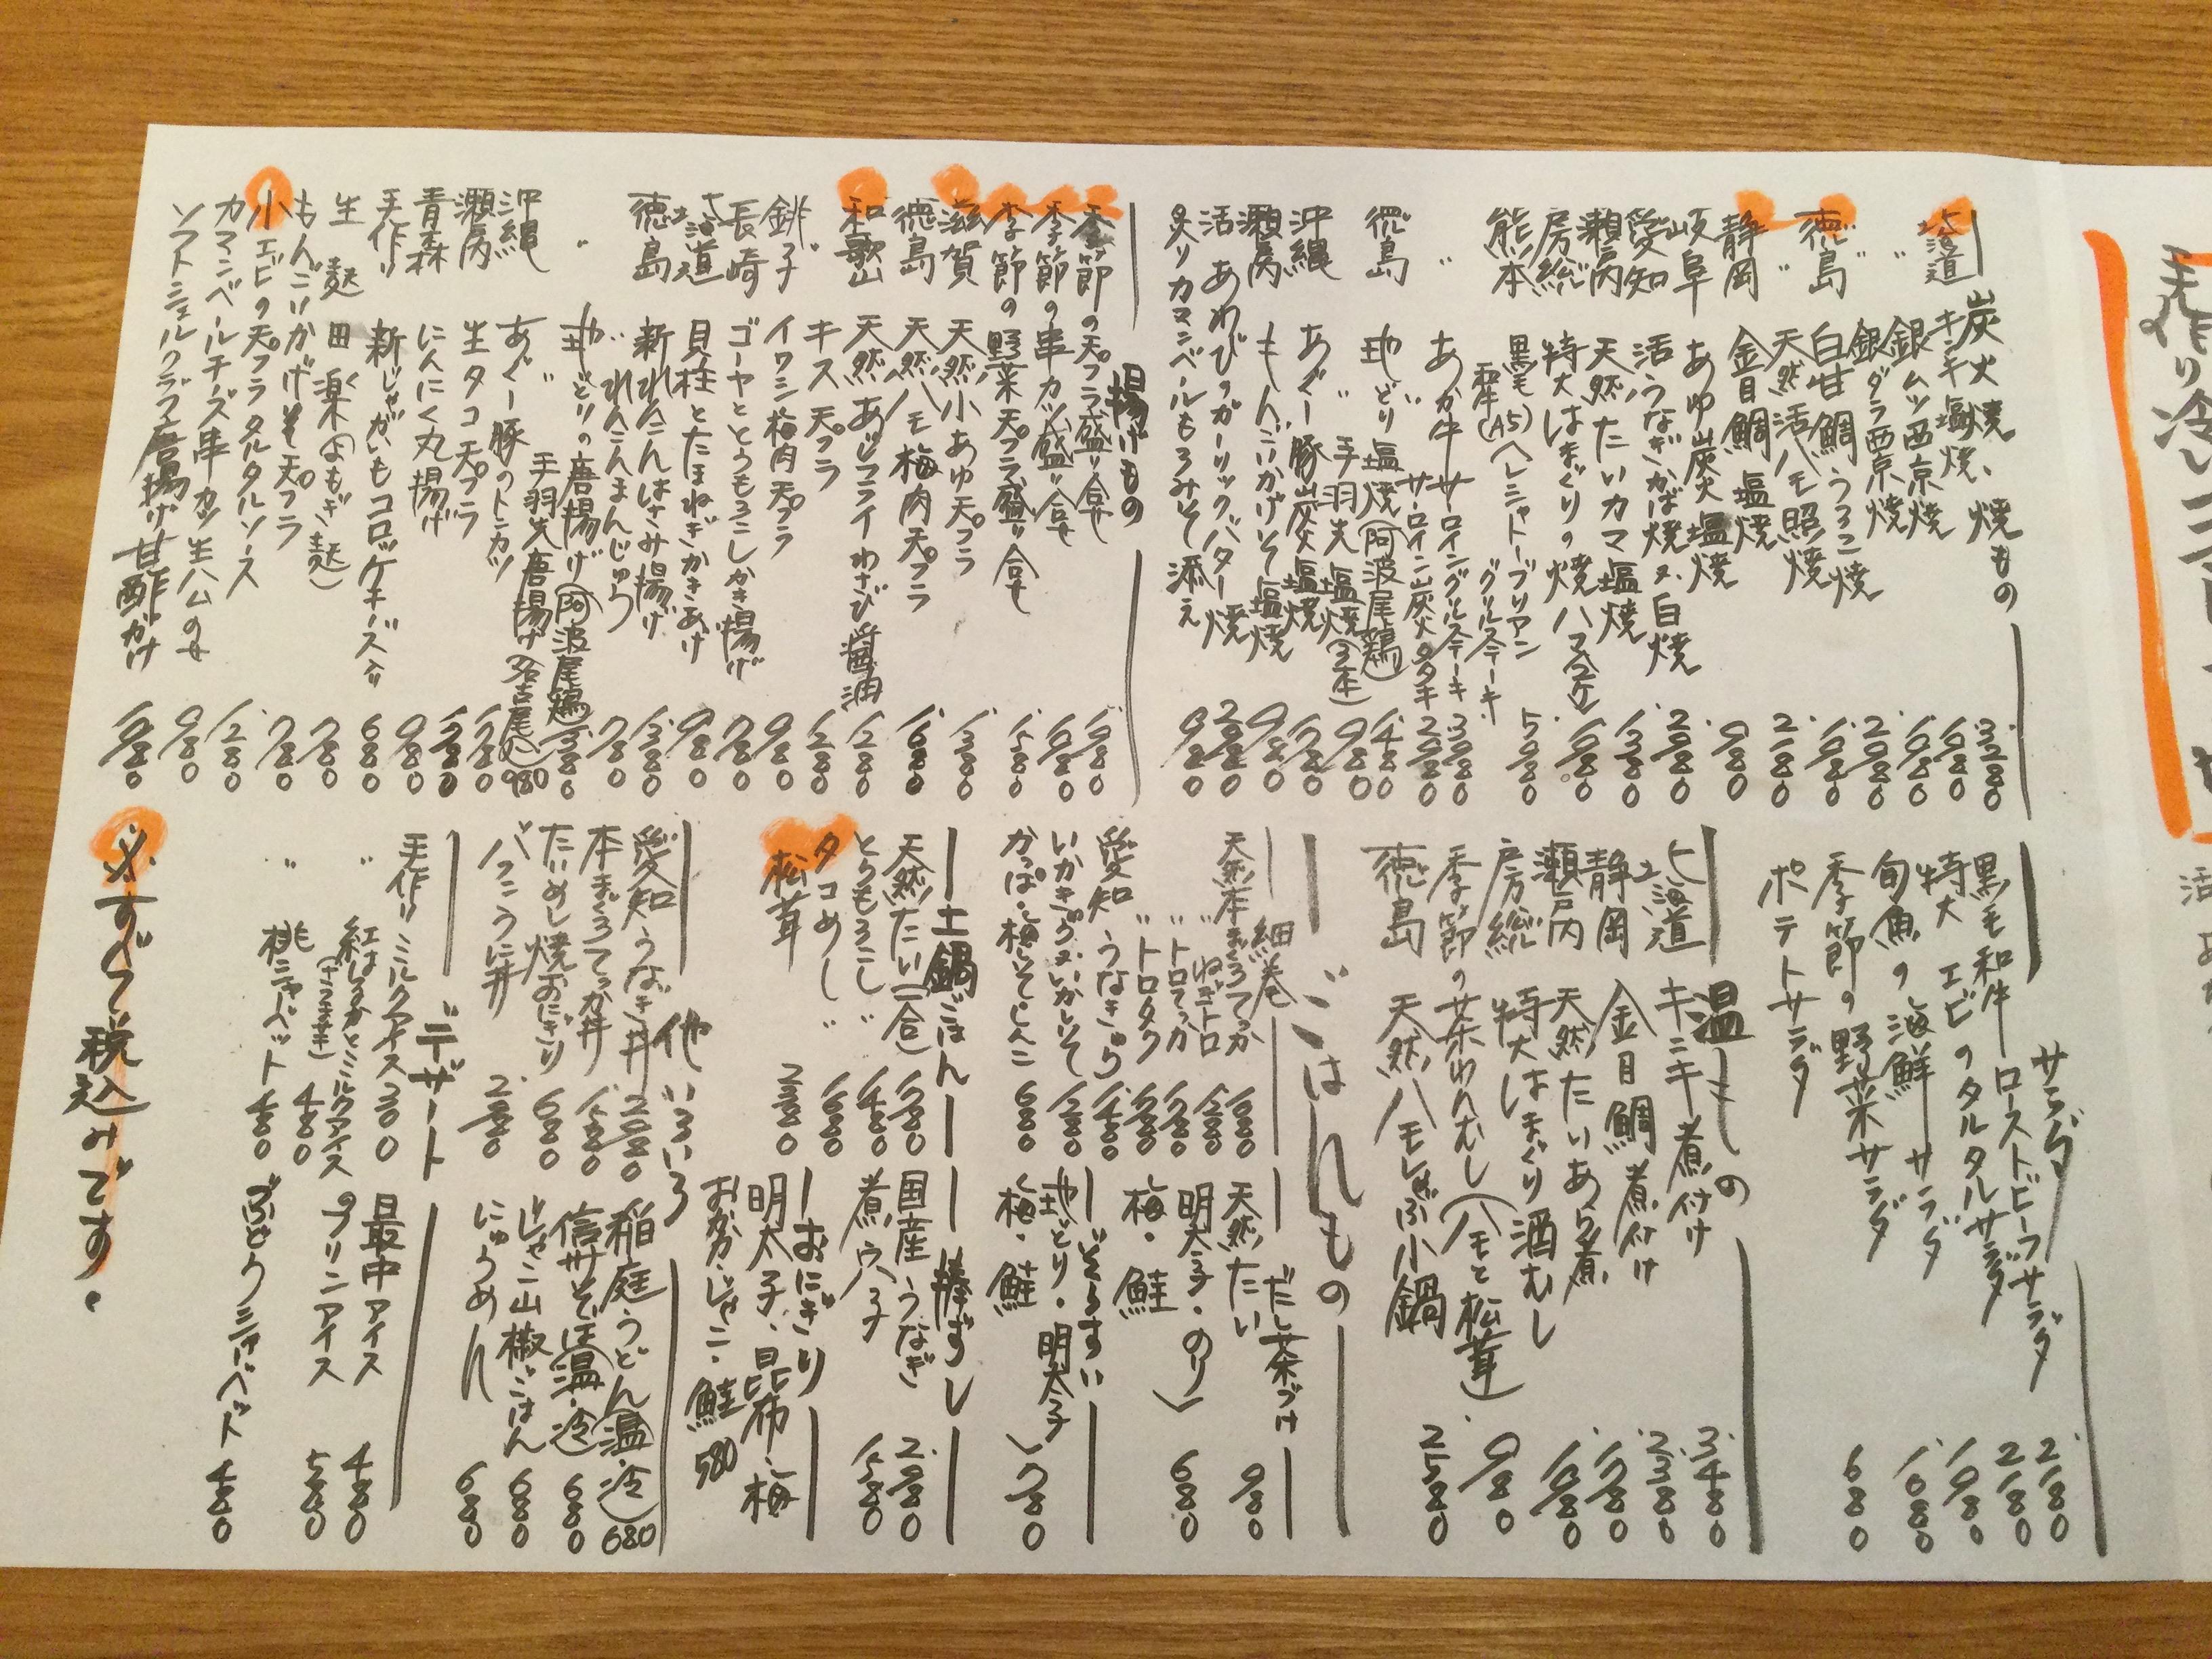 炭火焼、焼もの
北海道 キンキ塩焼 3.280
〃 銀ムツ西京焼 1.680
〃 銀ダラ西京焼 1.980
徳島 白甘鯛うろこ焼
〃 天然活ハモ照焼
静岡 金目鯛塩焼 2.180
岐阜 あゆ炭火塩焼 980
愛知 活うなぎかば焼 又、白焼 2.980
瀬戸内 天然たいカマ塩焼 1.380
房総 特大はまぐりの焼ハマ
熊本 黒毛 和牛(A5)ヘレシャトーブリアン グリルステーキ 5.980
〃 あか牛サーロイングリルステーキ 3.980
サーロイン炭火タタキ 2.980
徳島 地どり塩焼(阿波尾鶏) 1.480
〃 手羽先塩焼(3本) 980
沖縄 あぐー豚炭火塩焼 1.780
瀬戸内 もんごいかげそ塩焼 980
活あわびのガーリックバター焼 2.980
炙りカマンベールもろみそ添え 980
揚げもの
季節の天プラ盛り合せ 1.980
季節の串カツ盛り合せ 1.680
季節の野菜天プラ盛り合せ 1.580
滋賀 天然小あゆ天プラ 1.380
徳島 天然ハモ梅肉天プラ 1.680
和歌山 天然あじフライわさび醤油 1.280
〃 キス天プラ 1.280
銚子 イワシ梅肉天プラ 980
長崎 ゴーヤととうもろこしかき揚げ 780
北海道 貝柱とたまねぎかきあげ 980
徳島 新れんこんはさみ揚げ 1.380
〃 れんこんまんじゅう 780
〃 地どりの唐揚げ(阿波尾鶏) 1.380
〃 手羽先唐揚げ(名古屋風) 980
沖縄 あぐー豚のトンカツ 1.780
瀬戸内 生タコ天プラ
青森 にんにく丸揚げ 980
手作り 新じゃがいもコロッケチーズ入り 680
生麩田楽(よもぎ麩) 780
もんごいかげそ天プラ 780
小エビの天プラタルタルソース 1.280
カマンベールチーズ串カツ生ハムのせ 980
ソフトシェルクラブ唐揚げ甘酢がけ 1.980
サラダ
黒毛和牛ローストビーフサラダ 2.180
特大エビのタルタルサラダ 2.180
旬魚の海鮮サラダ 1.980
季節の野菜サラダ 1.680
ポテトサラダ 680
温もの
北海道 キンキ煮付け 3.480
静岡 金目鯛煮付け 2.380
瀬戸内 天然たいあら煮 1.780
房総 特大はまぐり酒むし 1.980
季節の茶わんむし(ハモと松茸) 980
徳島 天然ハモしゃぶ小鍋 2.580
ごはんもの
細巻
天然本まぐろてっか 1.680
〃 ねぎトロ 1.280
〃 トロてっか 1.780
〃 トロタク 1.580
愛知 うなきゅう 1.480
いかキムチ・いかしそ 1.280
かっぱ・梅しそ・しんこ 680
だし茶づけ
天然たい 980
明太子・のり
梅・鮭 680
ぞうすい
地どり・明太子
梅・鮭 780
土鍋ごはん
天然たい(一合) 1.780
とうもろこし〃 1.480
タコめし〃 1.680
松茸 2.980
棒ずし
国産うなぎ 2.980
煮穴子 1.580
おにぎり
明太子、昆布、梅
おかか・じゃこ・鮭 580
他いろいろ
愛知うなぎ丼 2.980
本まぐろてっか丼 1.580
たいめし焼おにぎり 680
バフンうに丼
稲庭うどん(温・冷) 680
信州そば(温・冷) 680
じゃこ山椒ごはん 680
にゅうめん 680
デザート
手作り ミルクアイス 300
〃 紅はるかとミルクアイス(さつま芋) 480
〃 桃シャーベット 480
最中アイス 480
プリンアイス 580
ぶどうシャーベット 480
※すべて税込みです。
手作り冷し